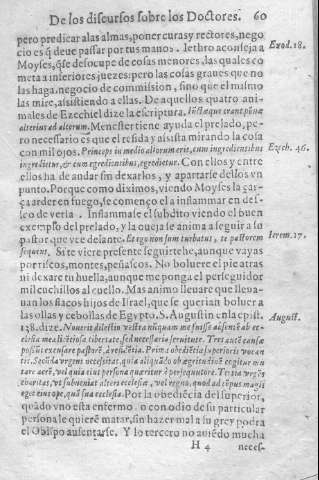 De los discursos sobre los Doctores. 60
pero predicar a las almas, poner curas y rectores, nego
cio es q̃ deue passar por tus manos. Iethro aconseja a Exod. 18.
Moyses, q̃ se desocupe de cosas menores, las quales co
meta a inferiores juezes: pero las cosas graues que no
las haga negocio de commission, sino que el mismo
las mire, asistiendo a ellas. De aquellos quatro ani-
males de Ezechiel dize la escriptura. Iũctæque erant pẽnæ
alterius ad alterum. Menester tiene ayuda el prelado, pe-
ro necessario es que el resida y asista mirando la cosa
con mil ojos. Princeps in medio illorum erit, cum ingredientibus Ezech. 46.
ingredietur, & cum egredientibus, egredietur. Con ellos y entre
ellos ha de andar sin dexarlos, y apartarse dellos vn
punto. Porque como diximos, viendo Moyses la çar-
ça arder en fuego, se començo el a inflammar en des-
seo de verla. Inflammase el subdito viendo el buen
exemplo del prelado, y la oueja se anima a seguir a su
pastor que vee delante. Et ego non sum turbatus, te pastorem Ierem. 17.
sequens. Si te viere presente seguirtehe, aunque vayas
por riscos, montes, peñascos. No boluere el pie atras
ni dexare tu huella, aunque me ponga el perseguidor
mil cuchillos al cuello. Mas animo lleuare que lleua-
uan los flacos hijos de Israel, que se querian boluer a
las ollas y cebollas de Egypto. S. Augustin en la epist. August.
138. dize. Nouerit dilectio vestra nũquam me fuisse absentẽ ab ec-
clesia mea licẽtiosa libertate, sed necessaria seruitute. Tres autẽ causæ
possũt excusare pastorẽ, à residẽtia. Prima obediẽtia superioris vocan
tis. Secũda vrgens necessitas, quia aliquãdo ob ægritudinẽ cogitur mu
tare aerẽ, vel quia eius persona quæritur à persequutore. Tertia vrgẽs
charitas, vt subueniat alteri ecclesiæ, vel regno, quod ad tẽpus magis
eget eius ope, quã sua ecclesia. Por la obediẽcia del superior,
quãdo vno esta enfermo, o con odio de su particular
persona le quierẽ matar, sin hazer mal a su grey podra
el Obispo ausentarse. Y lo tercero no auiẽdo mucha
H 4 neces-